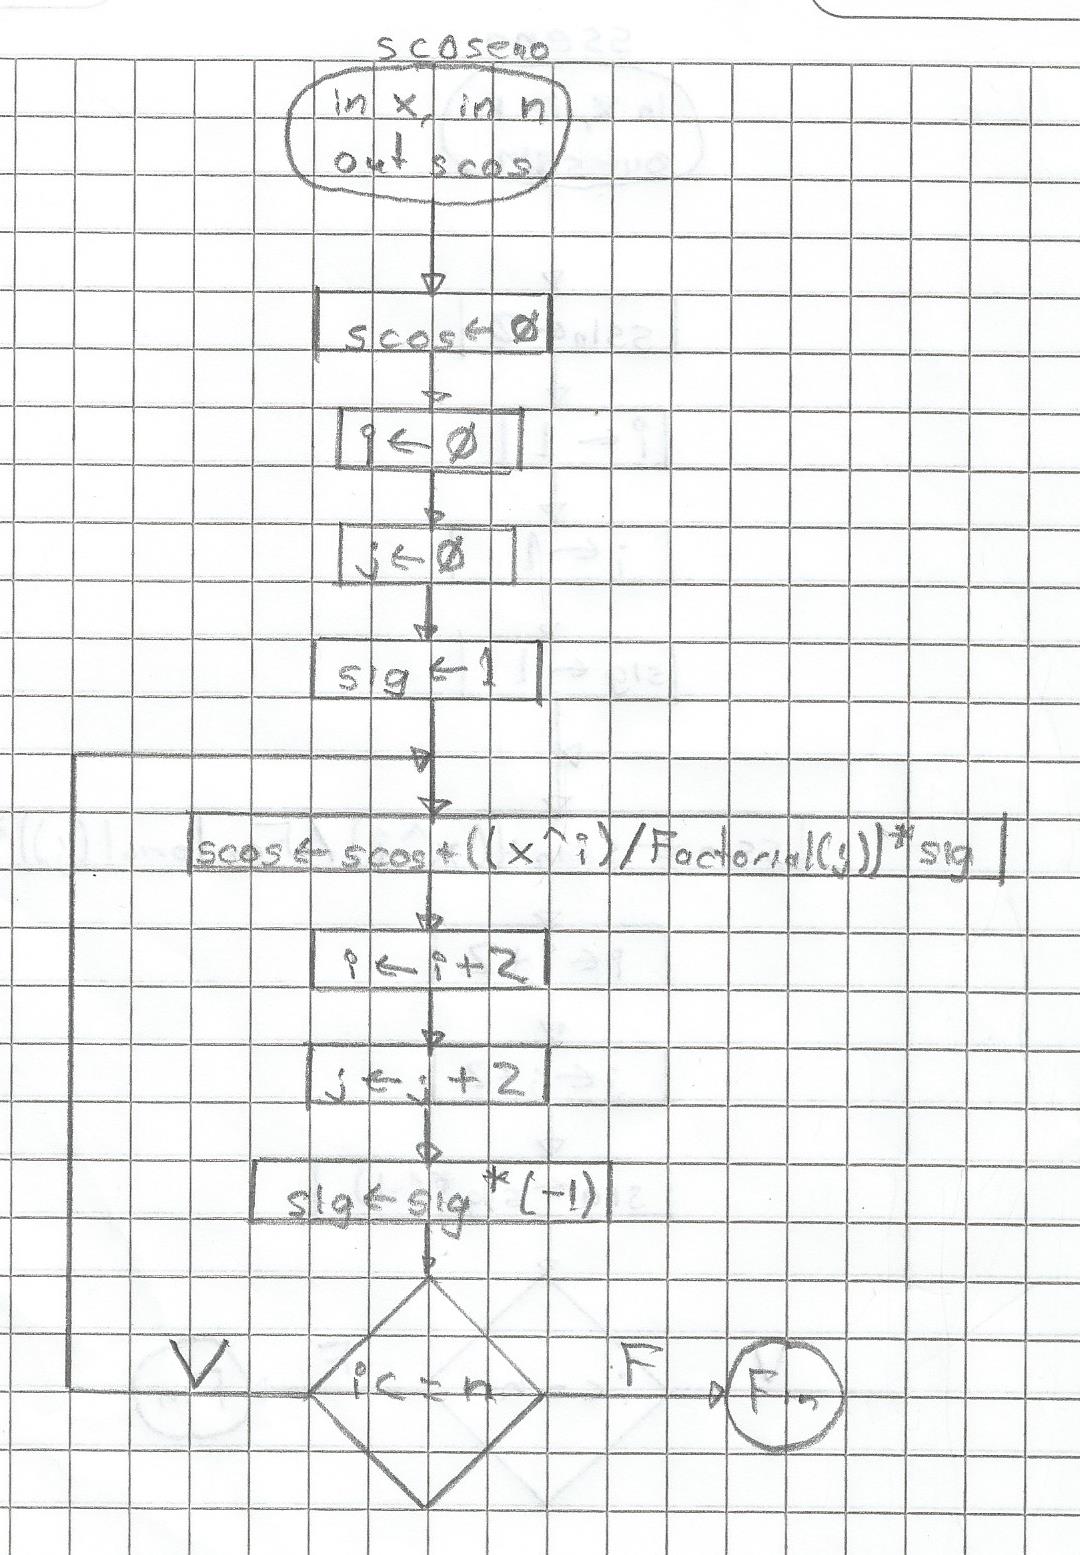 scoseno
in x, in n
out scos
scos ← Ø
i ← Ø
j ← Ø
sig ← 1
scos ← scos + ((x^i)/Factorial(j))*sig
i ← i + 2
j ← j + 2
sig ← sig * (-1)
V
i <= n
F
Fin